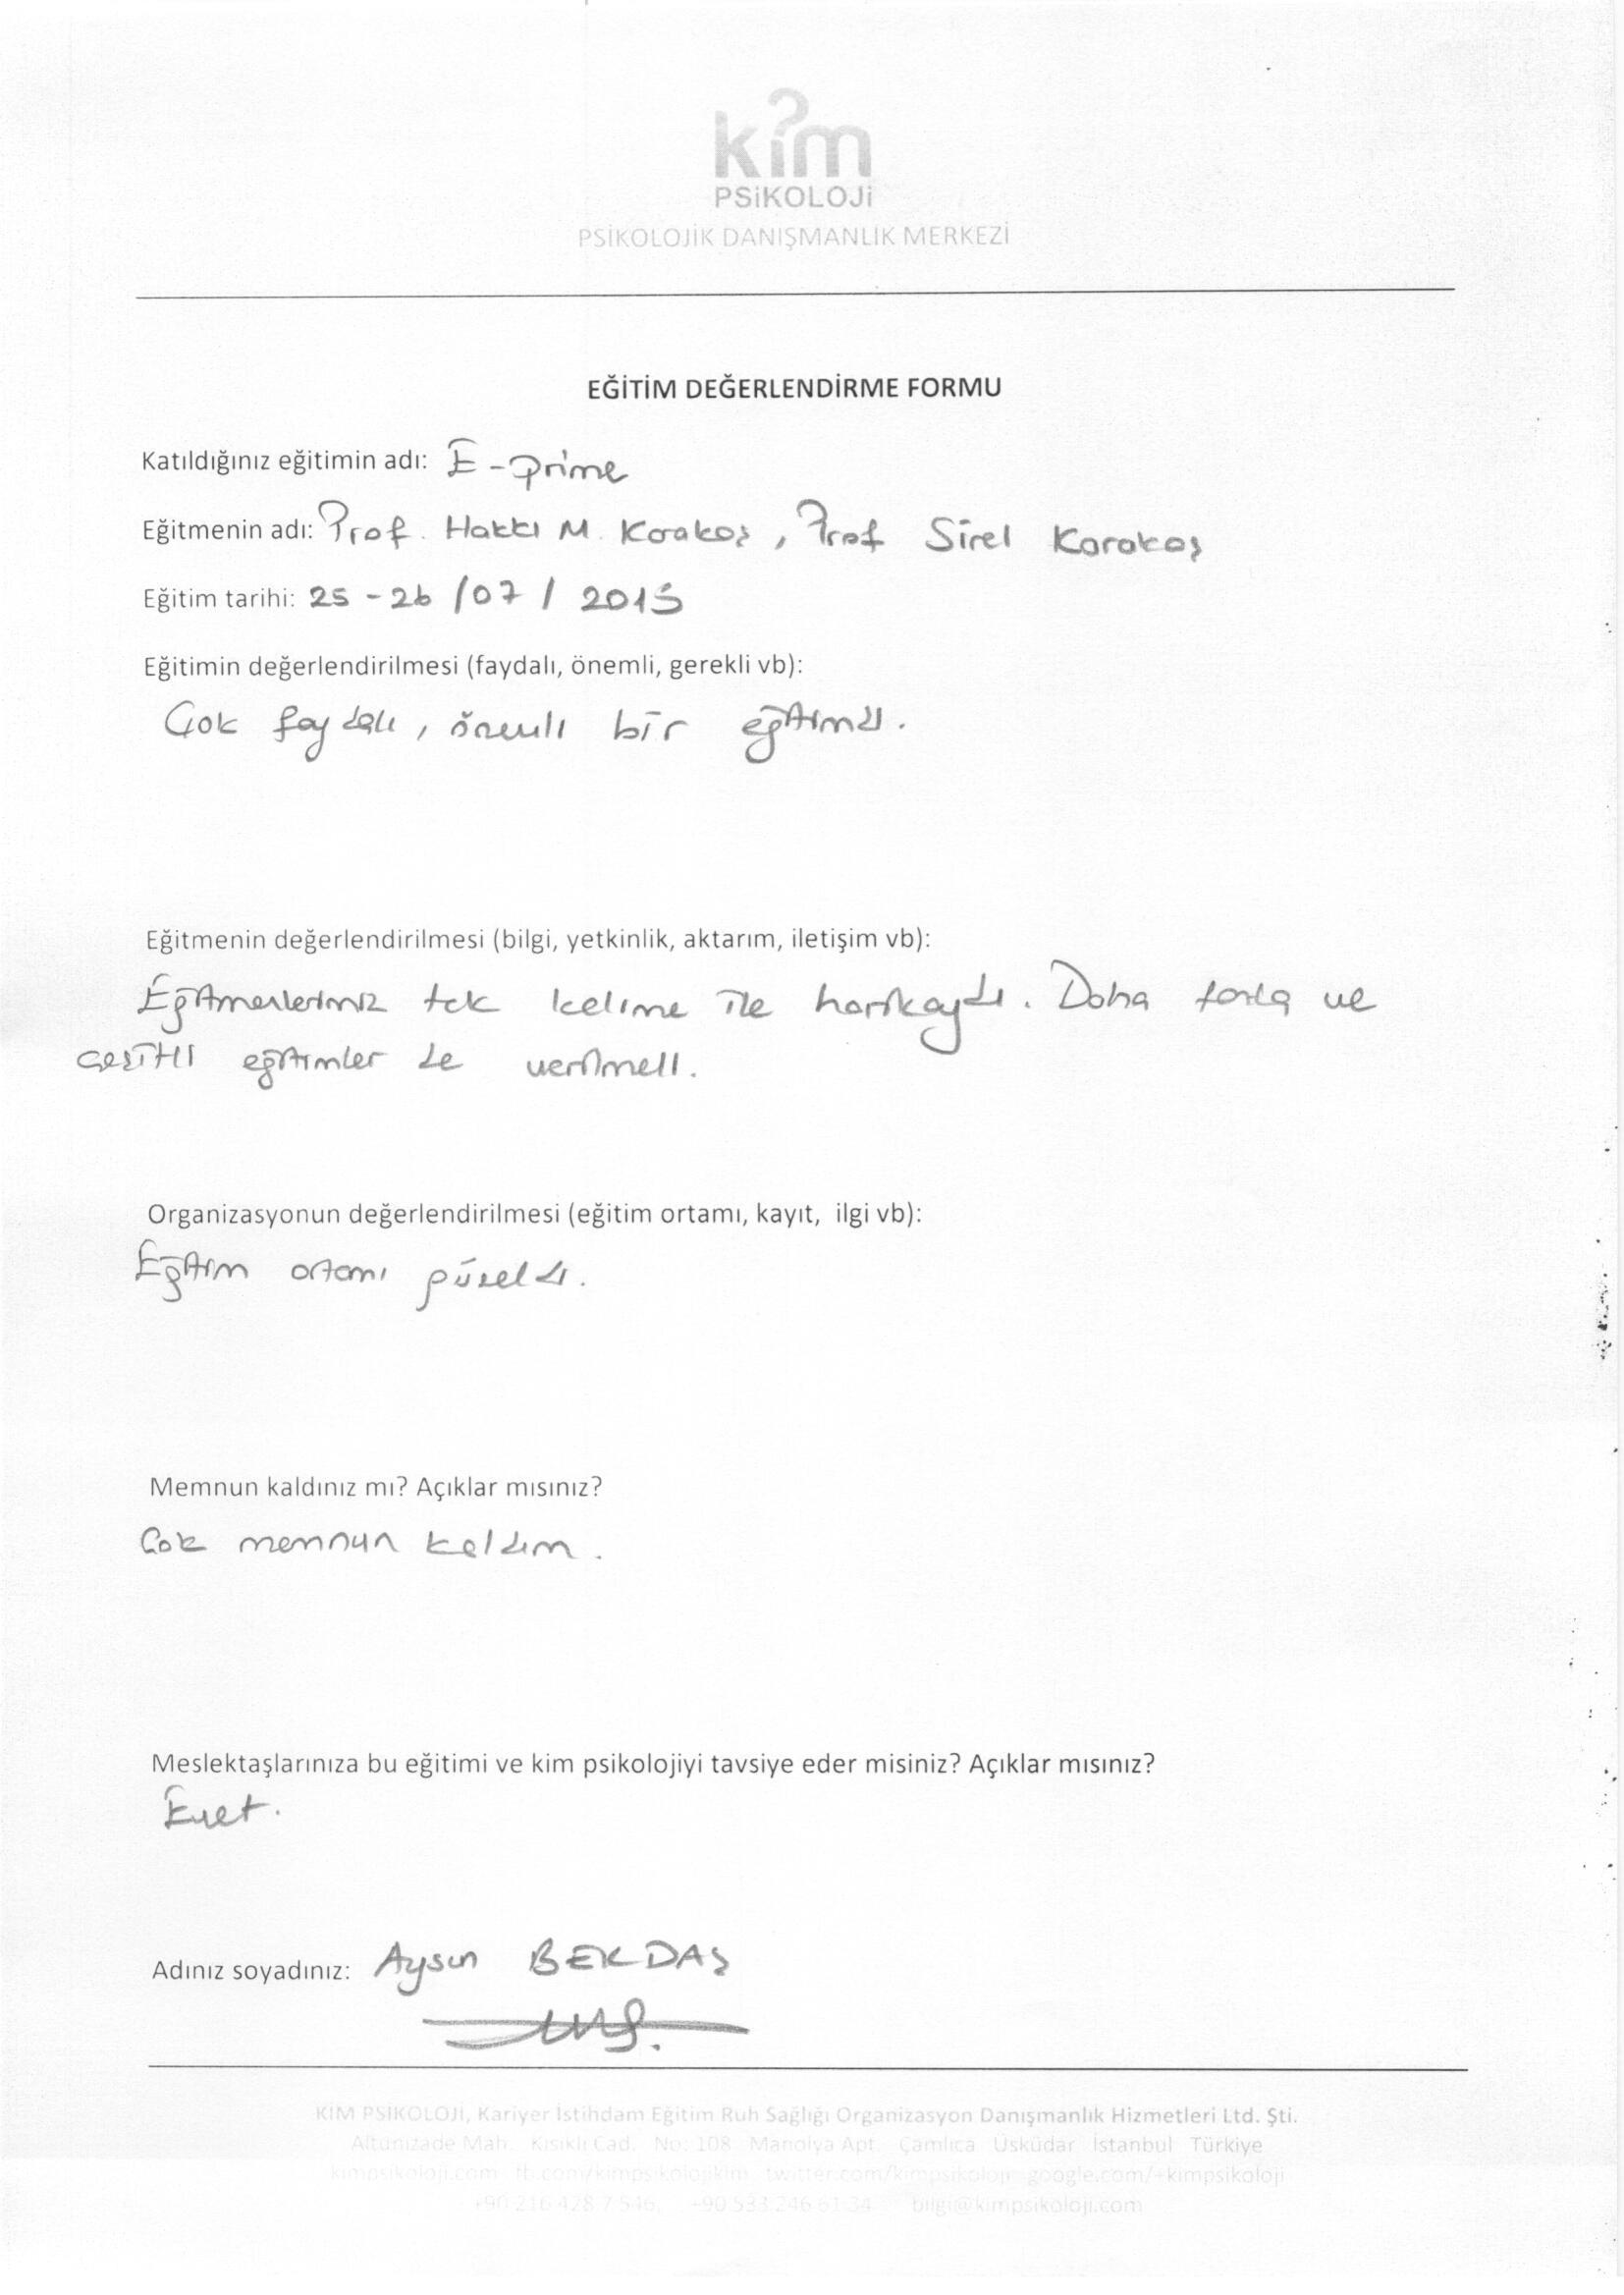 kim
PSiKOLOJi
PSİKOLOJİK DANIŞMANLIK MERKEZİ
EĞİTİM DEĞERLENDİRME FORMU
Katıldığınız eğitimin adı: E-prime
Eğitmenin adı: Prof. Hakkı M. Karakaş, Prof Sirel Karakaş
Eğitim tarihi: 25-26/07/2015
Eğitimin değerlendirilmesi (faydalı, önemli, gerekli vb):
Çok faydalı, önemli bir eğitimdi.
Eğitmenin değerlendirilmesi (bilgi, yetkinlik, aktarım, iletişim vb):
Eğitmenlerimiz tek kelime ile harikaydı. Daha fazla ve
çeşitli eğitimler de verilmeli.
Organizasyonun değerlendirilmesi (eğitim ortamı, kayıt, ilgi vb):
Eğitim ortamı güzeldi.
Memnun kaldınız mı? Açıklar mısınız?
Çok memnun kaldım.
Meslektaşlarınıza bu eğitimi ve kim psikolojiyi tavsiye eder misiniz? Açıklar mısınız?
Evet.
Adınız soyadınız: Aysun BEKDAŞ
KİM PSIKOLOJI, Kariyer İstihdam Eğitim Ruh Sağlığı Organizasyon Danışmanlık Hizmetleri Ltd. Şti.
Altunizade Mah. Kısıklı Cad. No: 108 Manolya Apt. Çamlıca Üsküdar İstanbul Türkiye
kimpsikoloji.com fb.com/kimpsikolojikim twitter.com/kimpsikoloji google.com/+kimpsikoloji
+90 216 428 7 546, +90 533 246 61 34 bilgi@kimpsikoloji.com